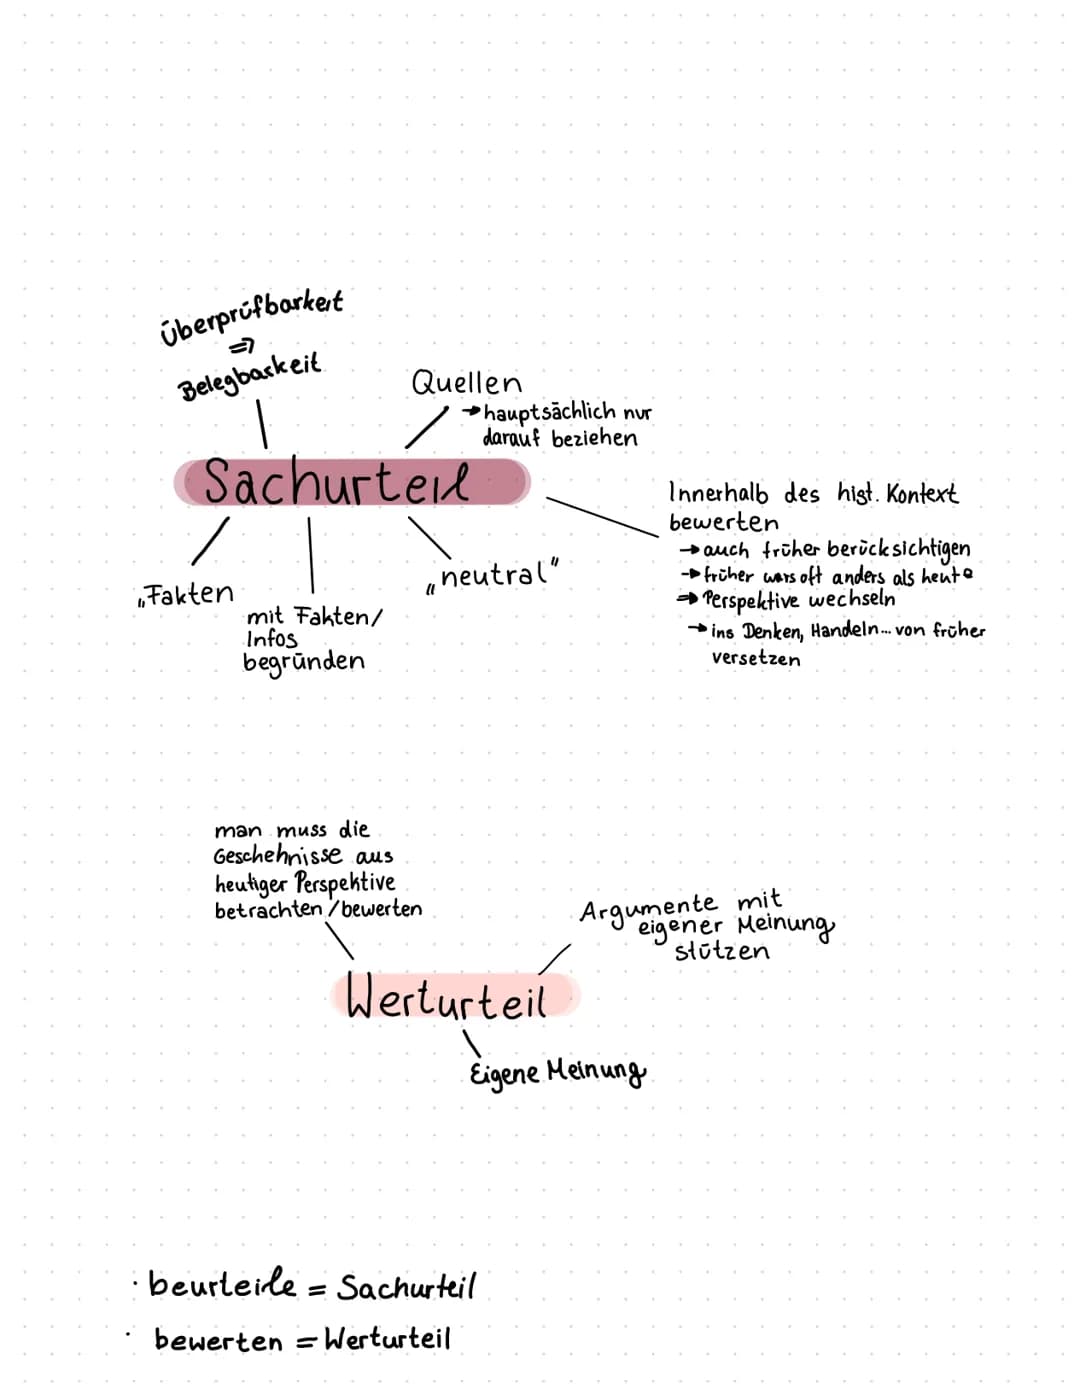 Überprüfbarkeit
⇒
Belegbarkeit
Quellen
→ hauptsächlich nur
darauf beziehen
Sachurteil
Innerhalb des hist. Kontext
bewerten
→ auch früher berücksichtigen
→ früher wars oft anders als heute
⇒ Perspektive wechseln
→ ins Denken, Handeln... von früher
versetzen
„Fakten
mit Fakten/
Infos
begründen
„neutral"
man muss die
Geschehnisse aus
heutiger Perspektive
betrachten/bewerten
Argumente mit
eigener Meinung
stützen
Werturteil
Eigene Meinung
· beurteile = Sachurteil
· bewerten = Werturteil